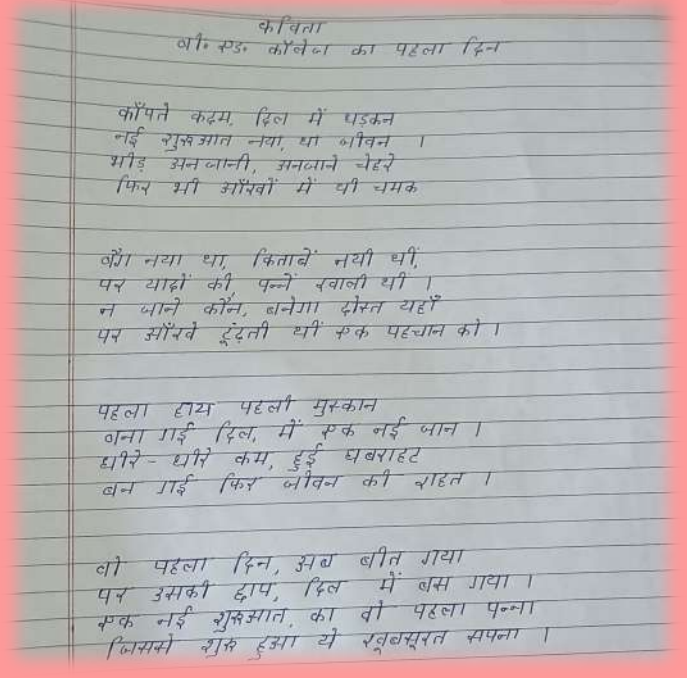 कविता
बी० एड० कॉलेज का पहला दिन
काँपते कदम, दिल में धड़कन
नई शुरुआत नया, था जीवन ।
भीड़ अनजानी, अनजाने चेहरे
फिर भी आँखों में थी चमक
बैग नया था, किताबें नयी थीं,
पर यादों की, पन्नें खाली थीं ।
न जाने कौन, बनेगा दोस्त यहाँ
पर आँखे ढूंढ़ती थीं एक पहचान को ।
पहला हाय पहली मुस्कान
बना गई दिल, में एक नई जान ।
धीरे - धीरे कम, हुई घबराहट
बन गई फिर जीवन की राहत ।
वो पहला दिन, अब बीत गया
पर उसकी छाप, दिल में बस गया ।
एक नई शुरुआत, का वो पहला पन्ना
जिससे शुरु हुआ ये खूबसूरत सपना ।